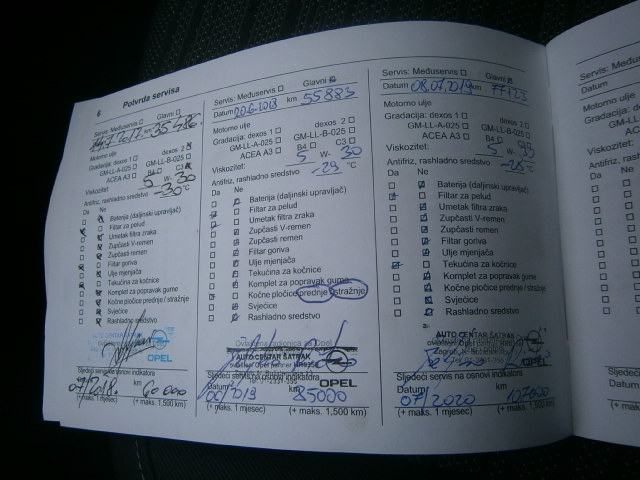 6 Potvrda servisa
Servis: Međuservis ☐ Glavni
km 35486
Motorno ulje
Gradacija: dexos 1 ☐ dexos 2
GM-LL-A-025 ☐ GM-LL-B-025 ☐
ACEA A3 ☐ B4 ☐ C3
Viskozitet 5 W- 30
Antifriz, rashladno sredstvo -30 °C
Da Ne
Baterija (daljinski upravljač)
Filtar za pelud
Umetak filtra zraka
Zupčasti V-remen
Zupčasti remen
Filtar goriva
Ulje mjenjača
Tekućina za kočnice
Komplet za popravak gume
Kočne pločice prednje / stražnje
Svjećice
Rashladno sredstvo
OPEL
Sljedeći servis na osnovi indikatora
07/2018. km 60 000
(+ maks. 1 mjesec) (+ maks. 1,500 km)
Servis: Međuservis ☐ Glavni
Datum km 55883
Motorno ulje
Gradacija: dexos 1 ☐ dexos 2 ☐
GM-LL-A-025 ☐ GM-LL-B-025 ☐
ACEA A3 ☐ B4 ☐ C3 ☐
Viskozitet: 5 W- 30
Antifriz, rashladno sredstvo -29 °C
Da Ne
Baterija (daljinski upravljač)
Filtar za pelud
Umetak filtra zraka
Zupčasti V-remen
Zupčasti remen
Filtar goriva
Ulje mjenjača
Tekućina za kočnice
Komplet za popravak gume
Kočne pločice prednje / stražnje
Svjećice
Rashladno sredstvo
AUTO CENTAR ŠATRAK
OPEL
Sljedeći servis na osnovi indikatora
Datum 06/2019 km 85000
(+ maks. 1 mjesec) (+ maks. 1,500 km)
Servis: Međuservis ☐ Glavni
Datum 08.07.2019 km 77123
Motorno ulje
Gradacija: dexos 1 ☐ dexos 2 ☐
GM-LL-A-025 ☐ GM-LL-B-025 ☐
ACEA A3 ☐ B4 ☐ C3 ☐
Viskozitet: 5 W- 30
Antifriz, rashladno sredstvo °C
Da Ne
Baterija (daljinski upravljač)
Filtar za pelud
Umetak filtra zraka
Zupčasti V-remen
Zupčasti remen
Filtar goriva
Ulje mjenjača
Tekućina za kočnice
Komplet za popravak gume
Kočne pločice prednje / stražnje
Svjećice
Rashladno sredstvo
AUTO CENTAR ŠATRAK
OPEL
Sljedeći servis na osnovi indikatora
Datum 07/2020 km 107000
(+ maks. 1 mjesec) (+ maks. 1,500 km)
Servis: Me
Datum
Motorno
Gradaci
Viskoz
Antifriz
Da